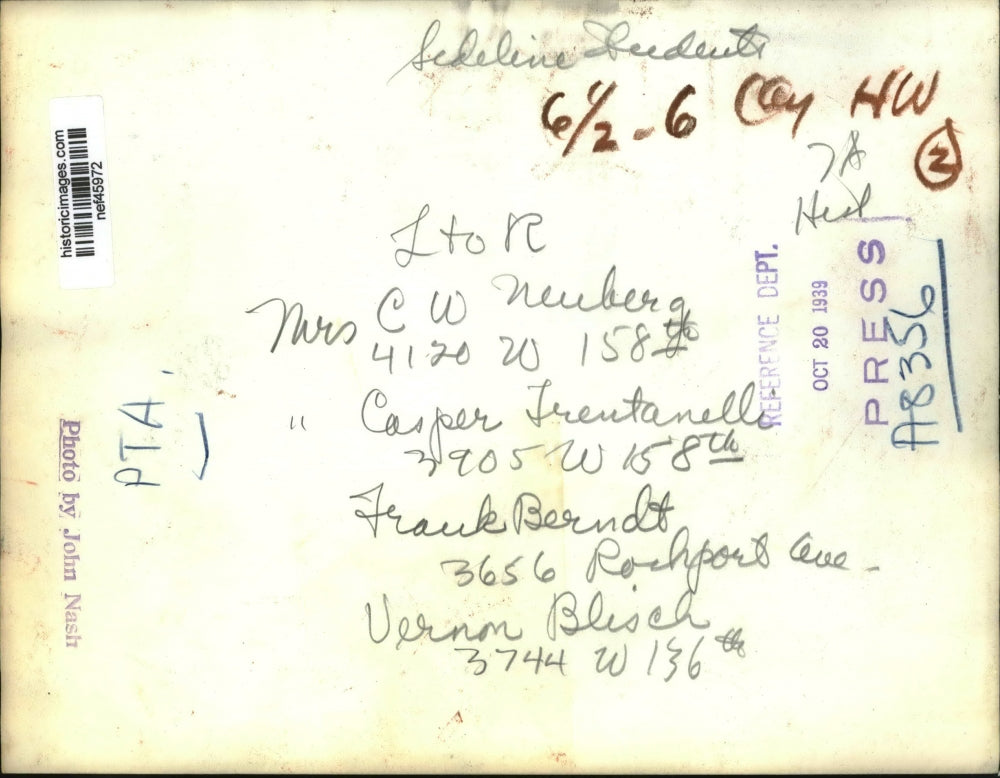 Sideline Students
6 1/2 - 6 Cay HW
2
78
Hist
L to R
Mrs C W Neuberg
4120 W 158th
" Casper Trentanelli
3905 W 158th
Frank Berndt
3656 Rockport Ave -
Vernon Blisch
3744 W 136th
historicimages.com
nef45972
PTA.
Photo by John Nash
REFERENCE DEPT.
OCT 20 1939
PRESS
A8356